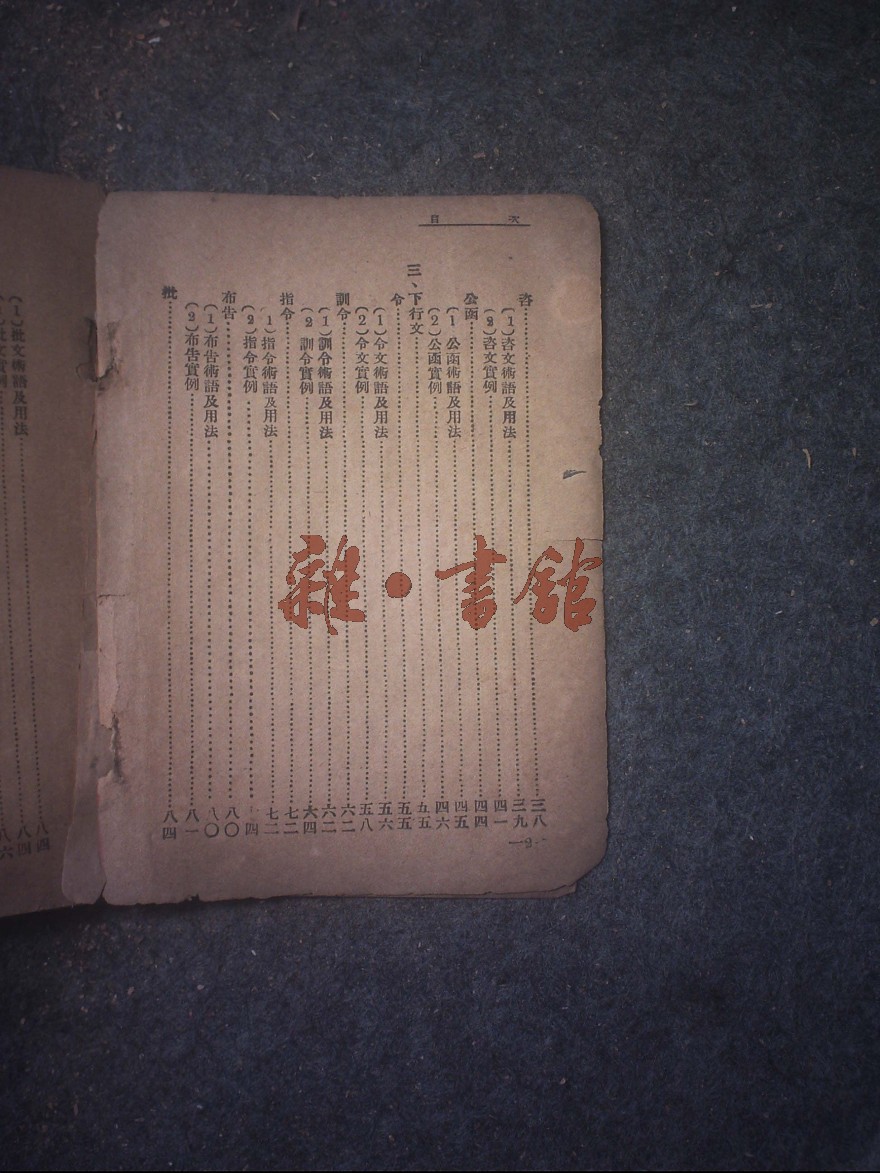 目次
咨……三八
(1)咨文術語及用法……三九
(2)咨文實例……四一
公函……四四
(1 公函術語及用法……四五
(2)公函實例……四六
三、下行文……五五
令……五五
(1)令文術語及用法……五六
(2)令文實例……五八
訓令……六二
(1)訓令術語及用法……六二
(2 訓令實例……六四
指令……七二
1)指令術語及用法……七二
(2)指令實例……四
布告……八〇
(1)布告術語及用法……八〇
(2)布告實例……八一
批……八四
(1)批文術語及用法……八四
批文實例……八六
雜·書館